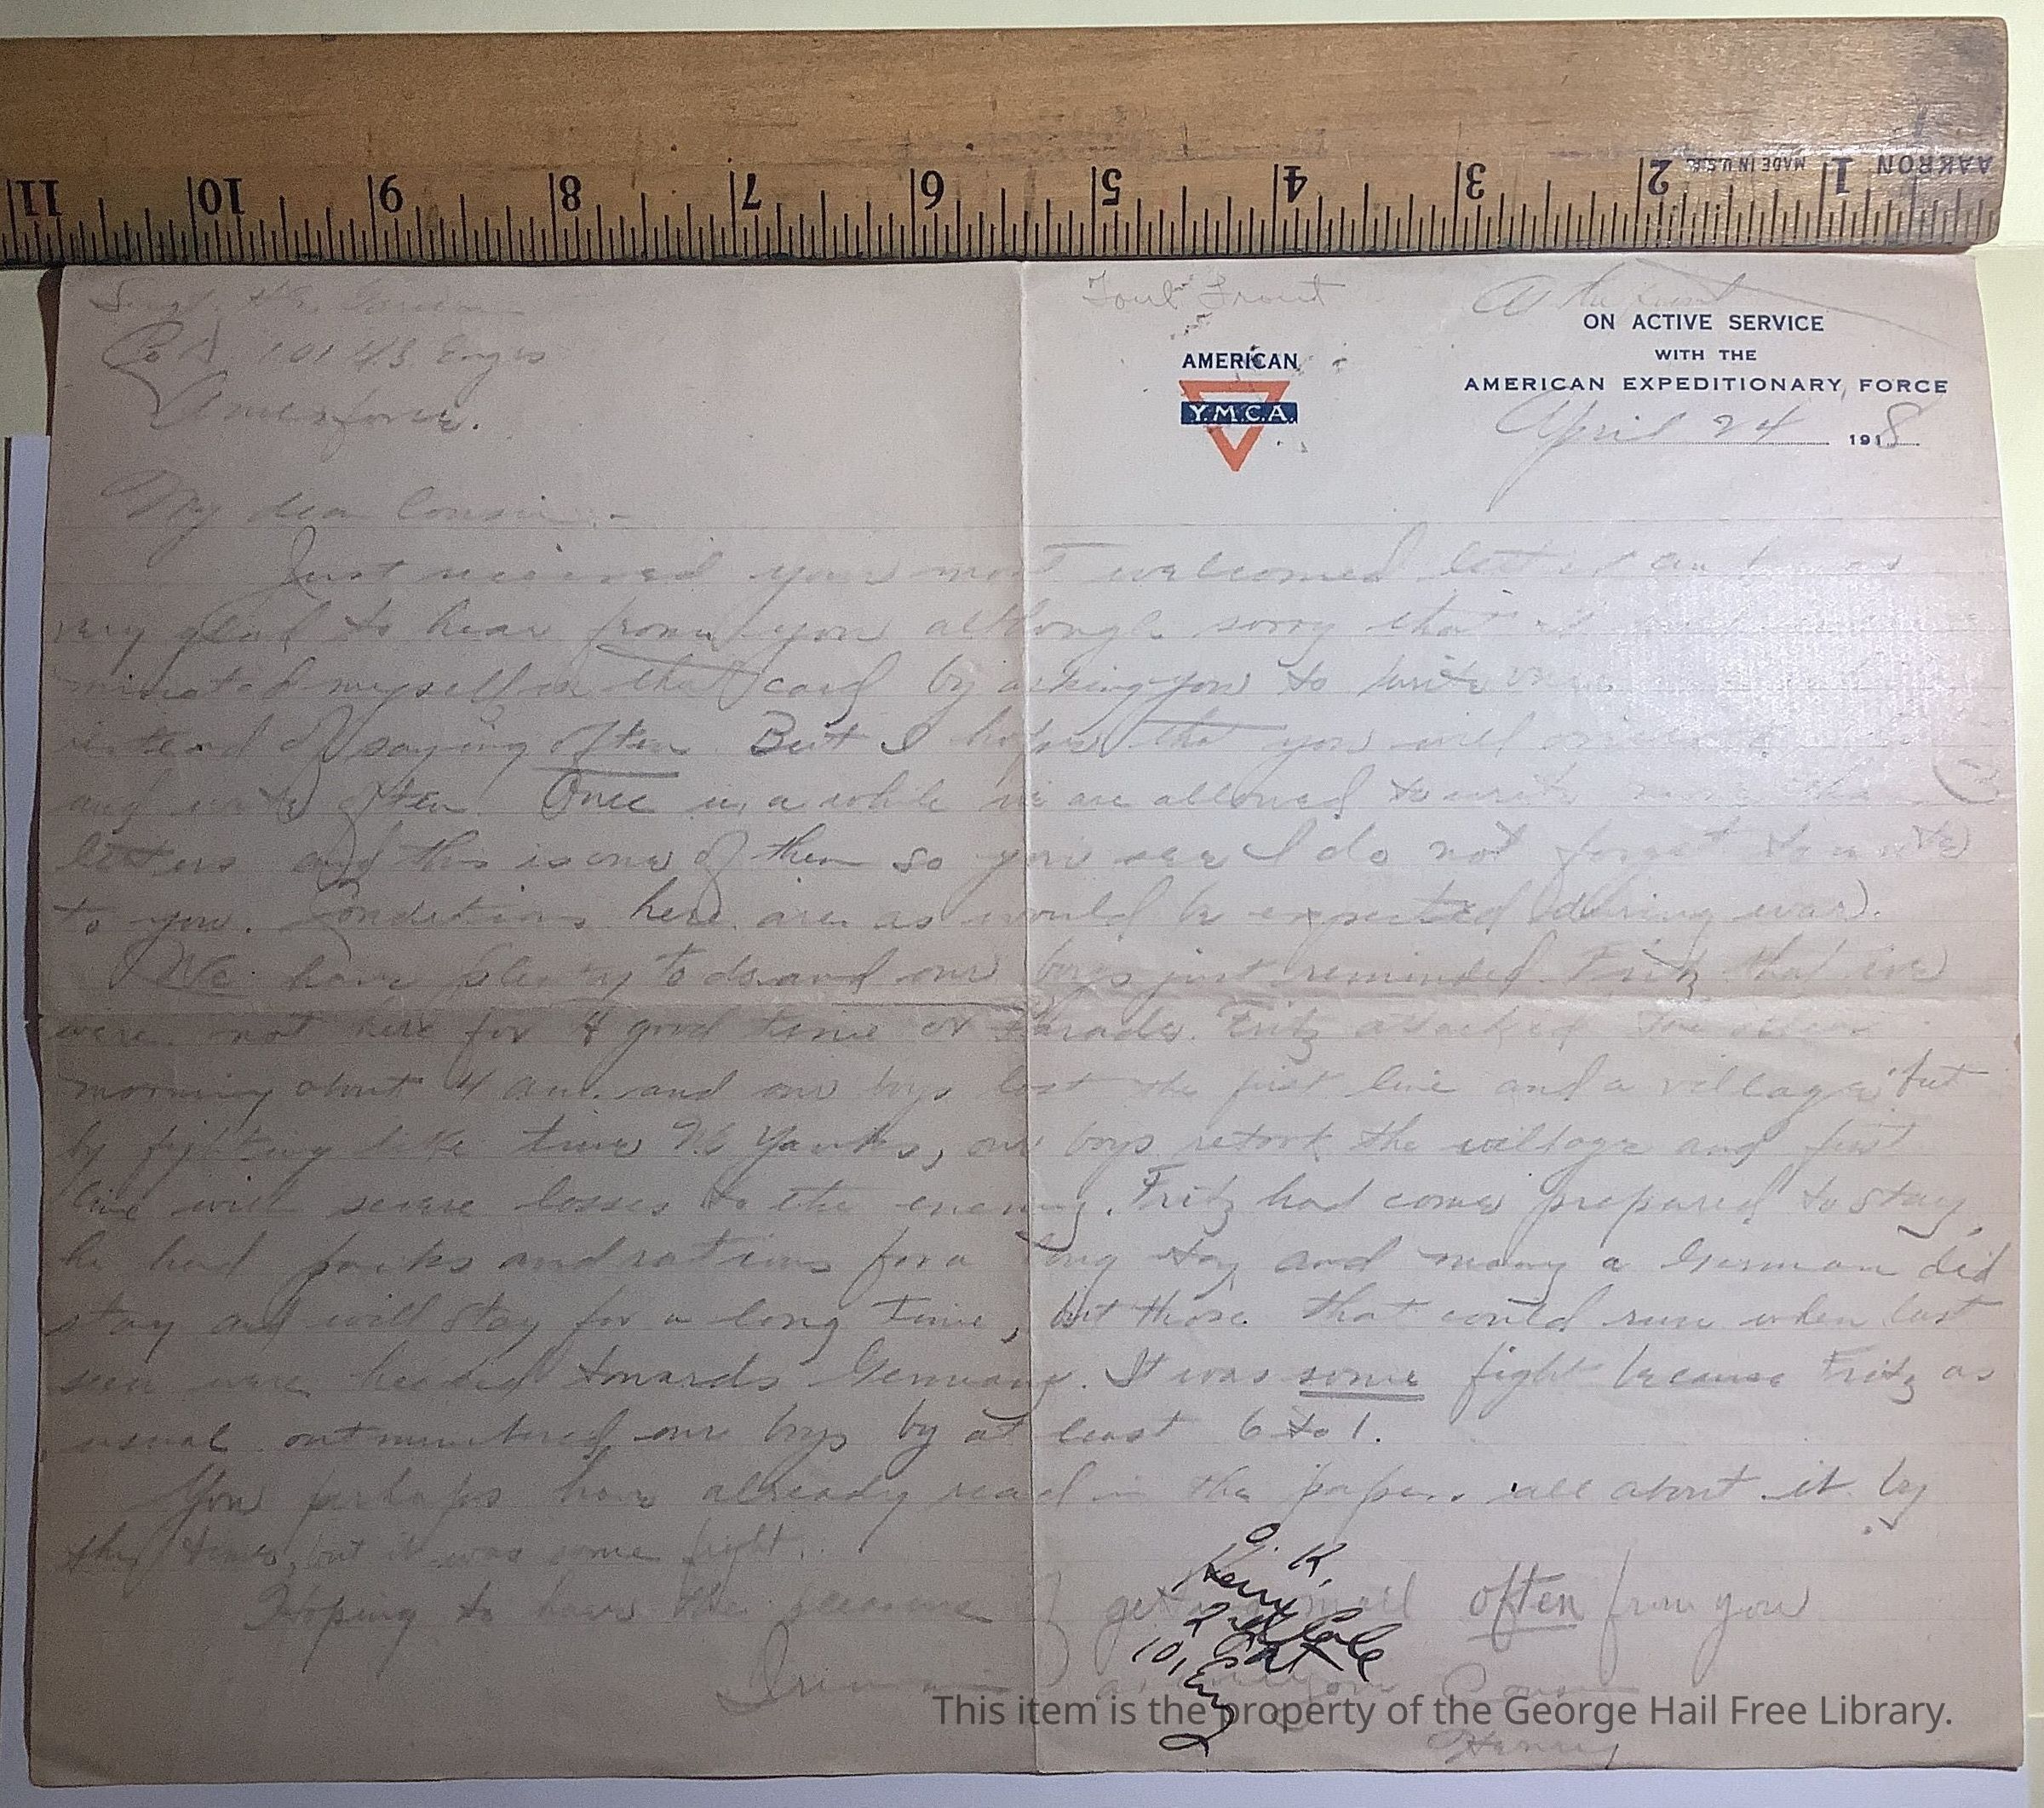 11 10 9 8 7 6 5 4 3 2 1
MADE IN U.S.A. AAKRON
Toul Front
Co A 101 U.S. Engrs
Amerforce.
AMERICAN
Y.M.C.A.
ON ACTIVE SERVICE
WITH THE
AMERICAN EXPEDITIONARY FORCE
April 24 1918
My dear Cousin:-
Just received your most welcomed letter and was
very glad to hear from you although sorry that
myself in that card by asking you to write
instead of saying often. But I hope that you will
and write often. Once in a while we are allowed to write
letters and this is one of them so you see I do not forget to write
to you. Conditions here are as would be expected during war.
We have plenty to do and our boys just reminded Fritz that we
were not here for a good time or parade. Fritz attacked
morning about 4 a.m. and our boys lost the first line and a village but
by fighting like true N.E. Yanks, our boys retook the village and first
line with severe losses to the enemy. Fritz had come prepared to stay,
he had packs and rations for a long stay and many a German did
stay and will stay for a long time, but those that could run when last
seen were headed towards Germany. It was some fight because Fritz as
usual outnumbered our boys by at least 6 to 1.
You perhaps have already read in the papers all about it by
this time, but it was some fight.
Hoping to have the pleasure of getting mail often from you
I remain as ever your Cousin
Henry
O.K.
This item is the property of the George Hail Free Library.